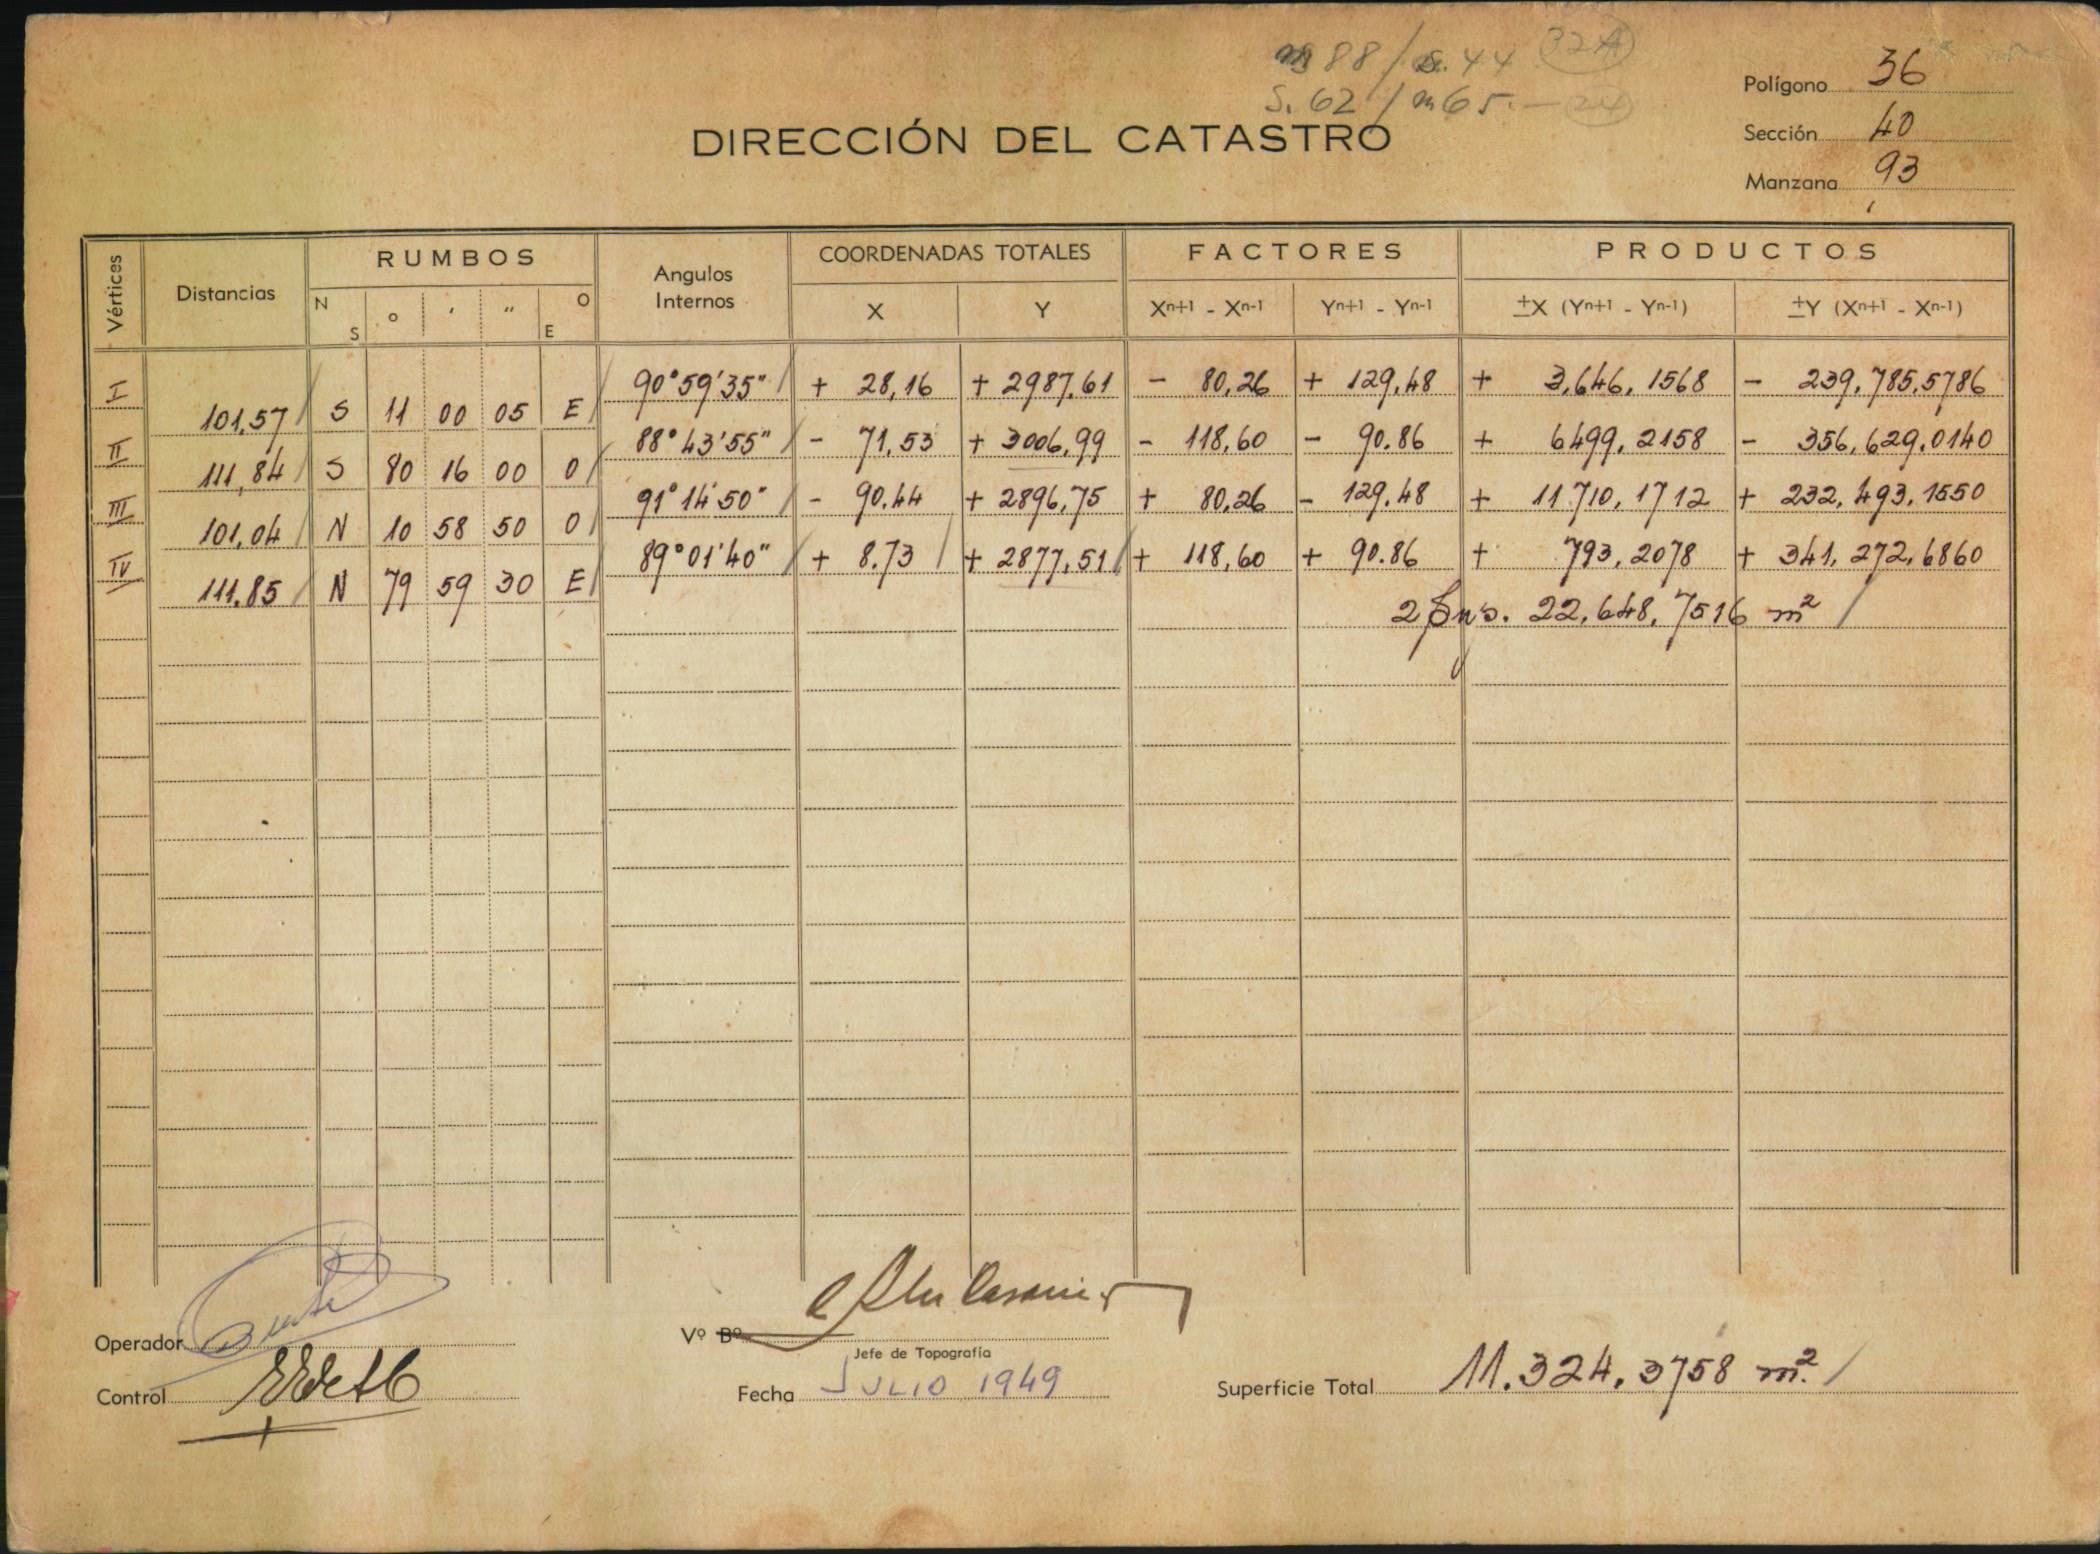 88 / s. 44 32A
S. 62 / m 65. — 24
Polígono 36
DIRECCIÓN DEL CATASTRO
Sección 40
Manzana 93
Vértices Distancias RUMBOS Angulos Internos COORDENADAS TOTALES FACTORES PRODUCTOS
N S ° ' " O E X Y Xn+1 - Xn-1 Yn+1 - Yn-1 ±X (Yn+1 - Yn-1) ±Y (Xn+1 - Xn-1)
I 90°59'35" + 28,16 + 2987,61 - 80,26 + 129,48 + 3,646,1568 - 239,785,5786
101,57 S 11 00 05 E
II 88°43'55" - 71,53 + 3006,99 - 118,60 - 90.86 + 6499,2158 - 356,629,0140
111,84 S 80 16 00 O
III 91°14'50" - 90.44 + 2896,75 + 80,26 - 129.48 + 11710,1712 + 232,493,1550
101,04 N 10 58 50 O
IV 89°01'40" + 8.73 + 2877,51 + 118,60 + 90.86 + 793,2078 + 341,272,6860
111.85 N 79 59 30 E
22,648,7516 m²
Operador
Vº Bº
Jefe de Topografía
Control
Fecha JULIO 1949
Superficie Total 11.324,3758 m².